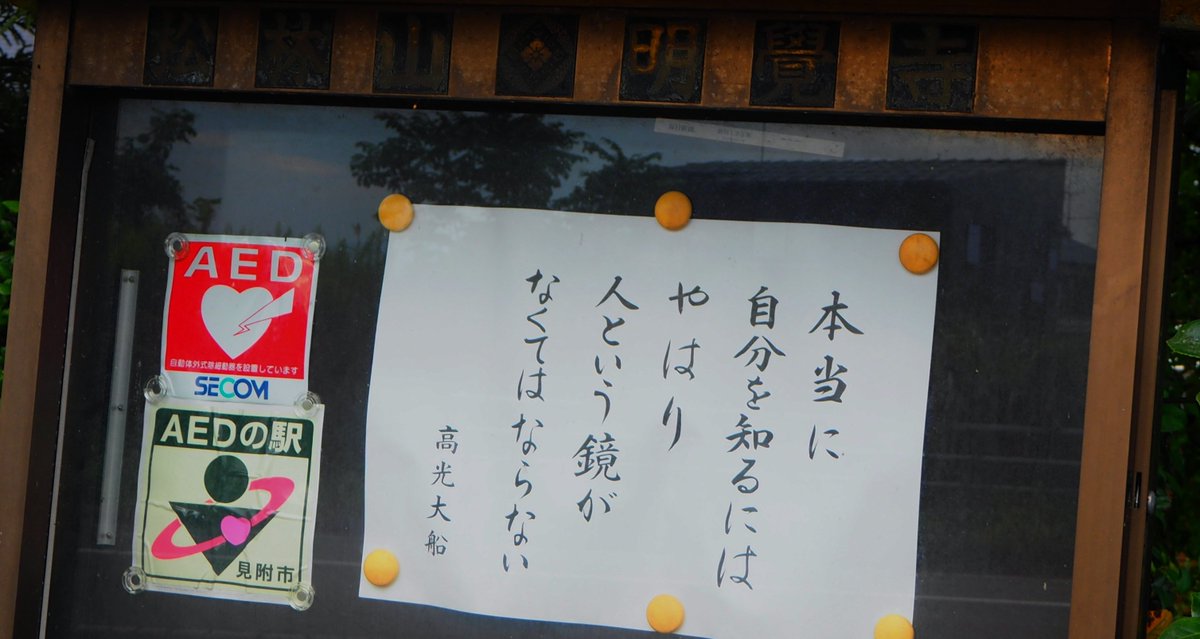 松林山 明覺寺
本当に
自分を知るには
やはり
人という鏡が
なくてはならない
高光大船
AED
自動体外式除細動器を設置しています
SECOM
AEDの駅
見附市